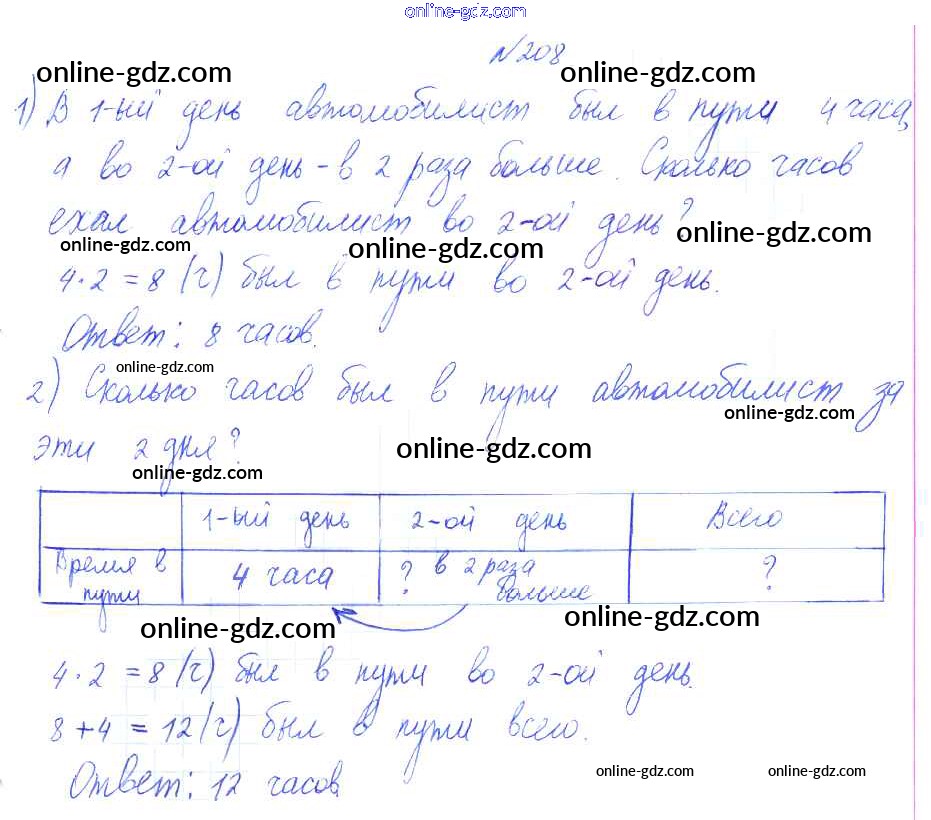 online-gdz.com
№208
online-gdz.com online-gdz.com
1) В 1-ый день автомобилист был в пути 4 часа,
а во 2-ой день - в 2 раза больше. Сколько часов
ехал автомобилист во 2-ой день?
online-gdz.com online-gdz.com online-gdz.com
4·2=8 (ч) был в пути во 2-ой день.
Ответ: 8 часов.
online-gdz.com
2) Сколько часов был в пути автомобилист за
online-gdz.com
эти 2 дня?
online-gdz.com
online-gdz.com
1-ый день 2-ой день Всего
Время в пути 4 часа ? в 2 раза больше ?
online-gdz.com online-gdz.com
4·2=8 (ч) был в пути во 2-ой день.
8+4=12 (ч) был в пути всего.
Ответ: 12 часов
online-gdz.com online-gdz.com